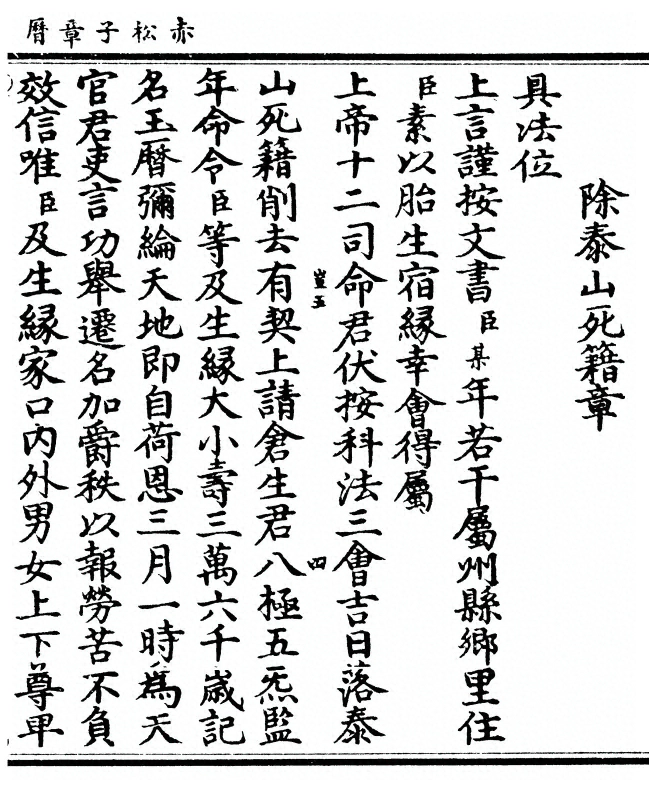 赤松子章曆
除泰山死籍章
具法位
上言謹按文書臣某年若干屬州縣鄉里住
臣素以胎生宿緣幸會得屬
上帝十二司命君伏按科法三會吉日落泰
豈五
四
山死籍削去有契上請倉生君八極五炁監
年命令臣等及生緣大小壽三萬六千歲記
名玉曆彌綸天地即自荷恩三月一時爲天
官君吏言功舉遷名加爵秩以報勞苦不負
效信唯臣及生緣家口內外男女上下尊卑